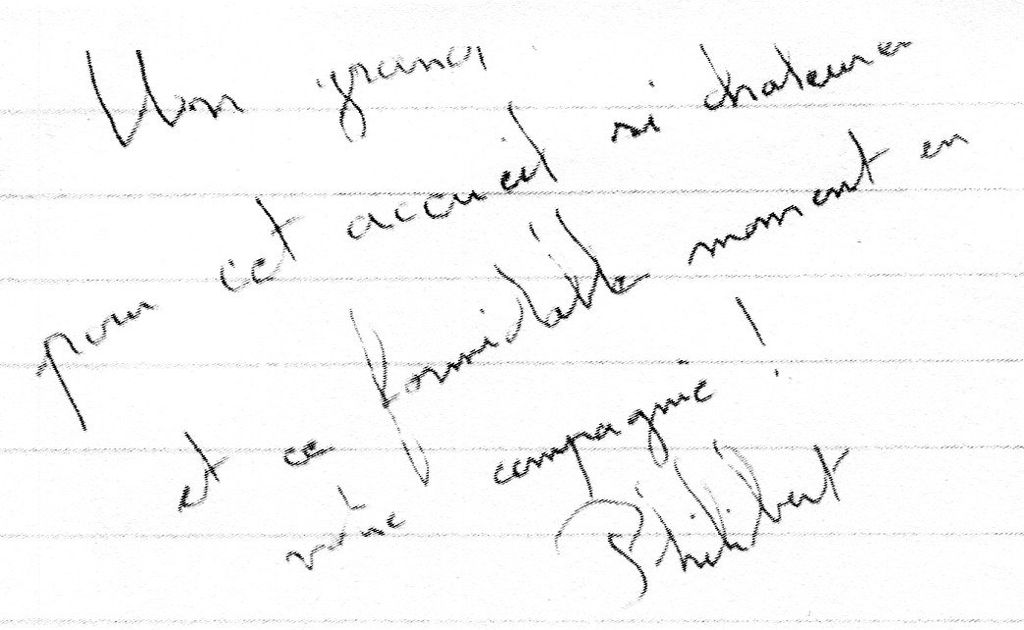 Un grand
pour cet accueil si chaleureu
et ce formidable moment en
votre compagnie !
Philibert